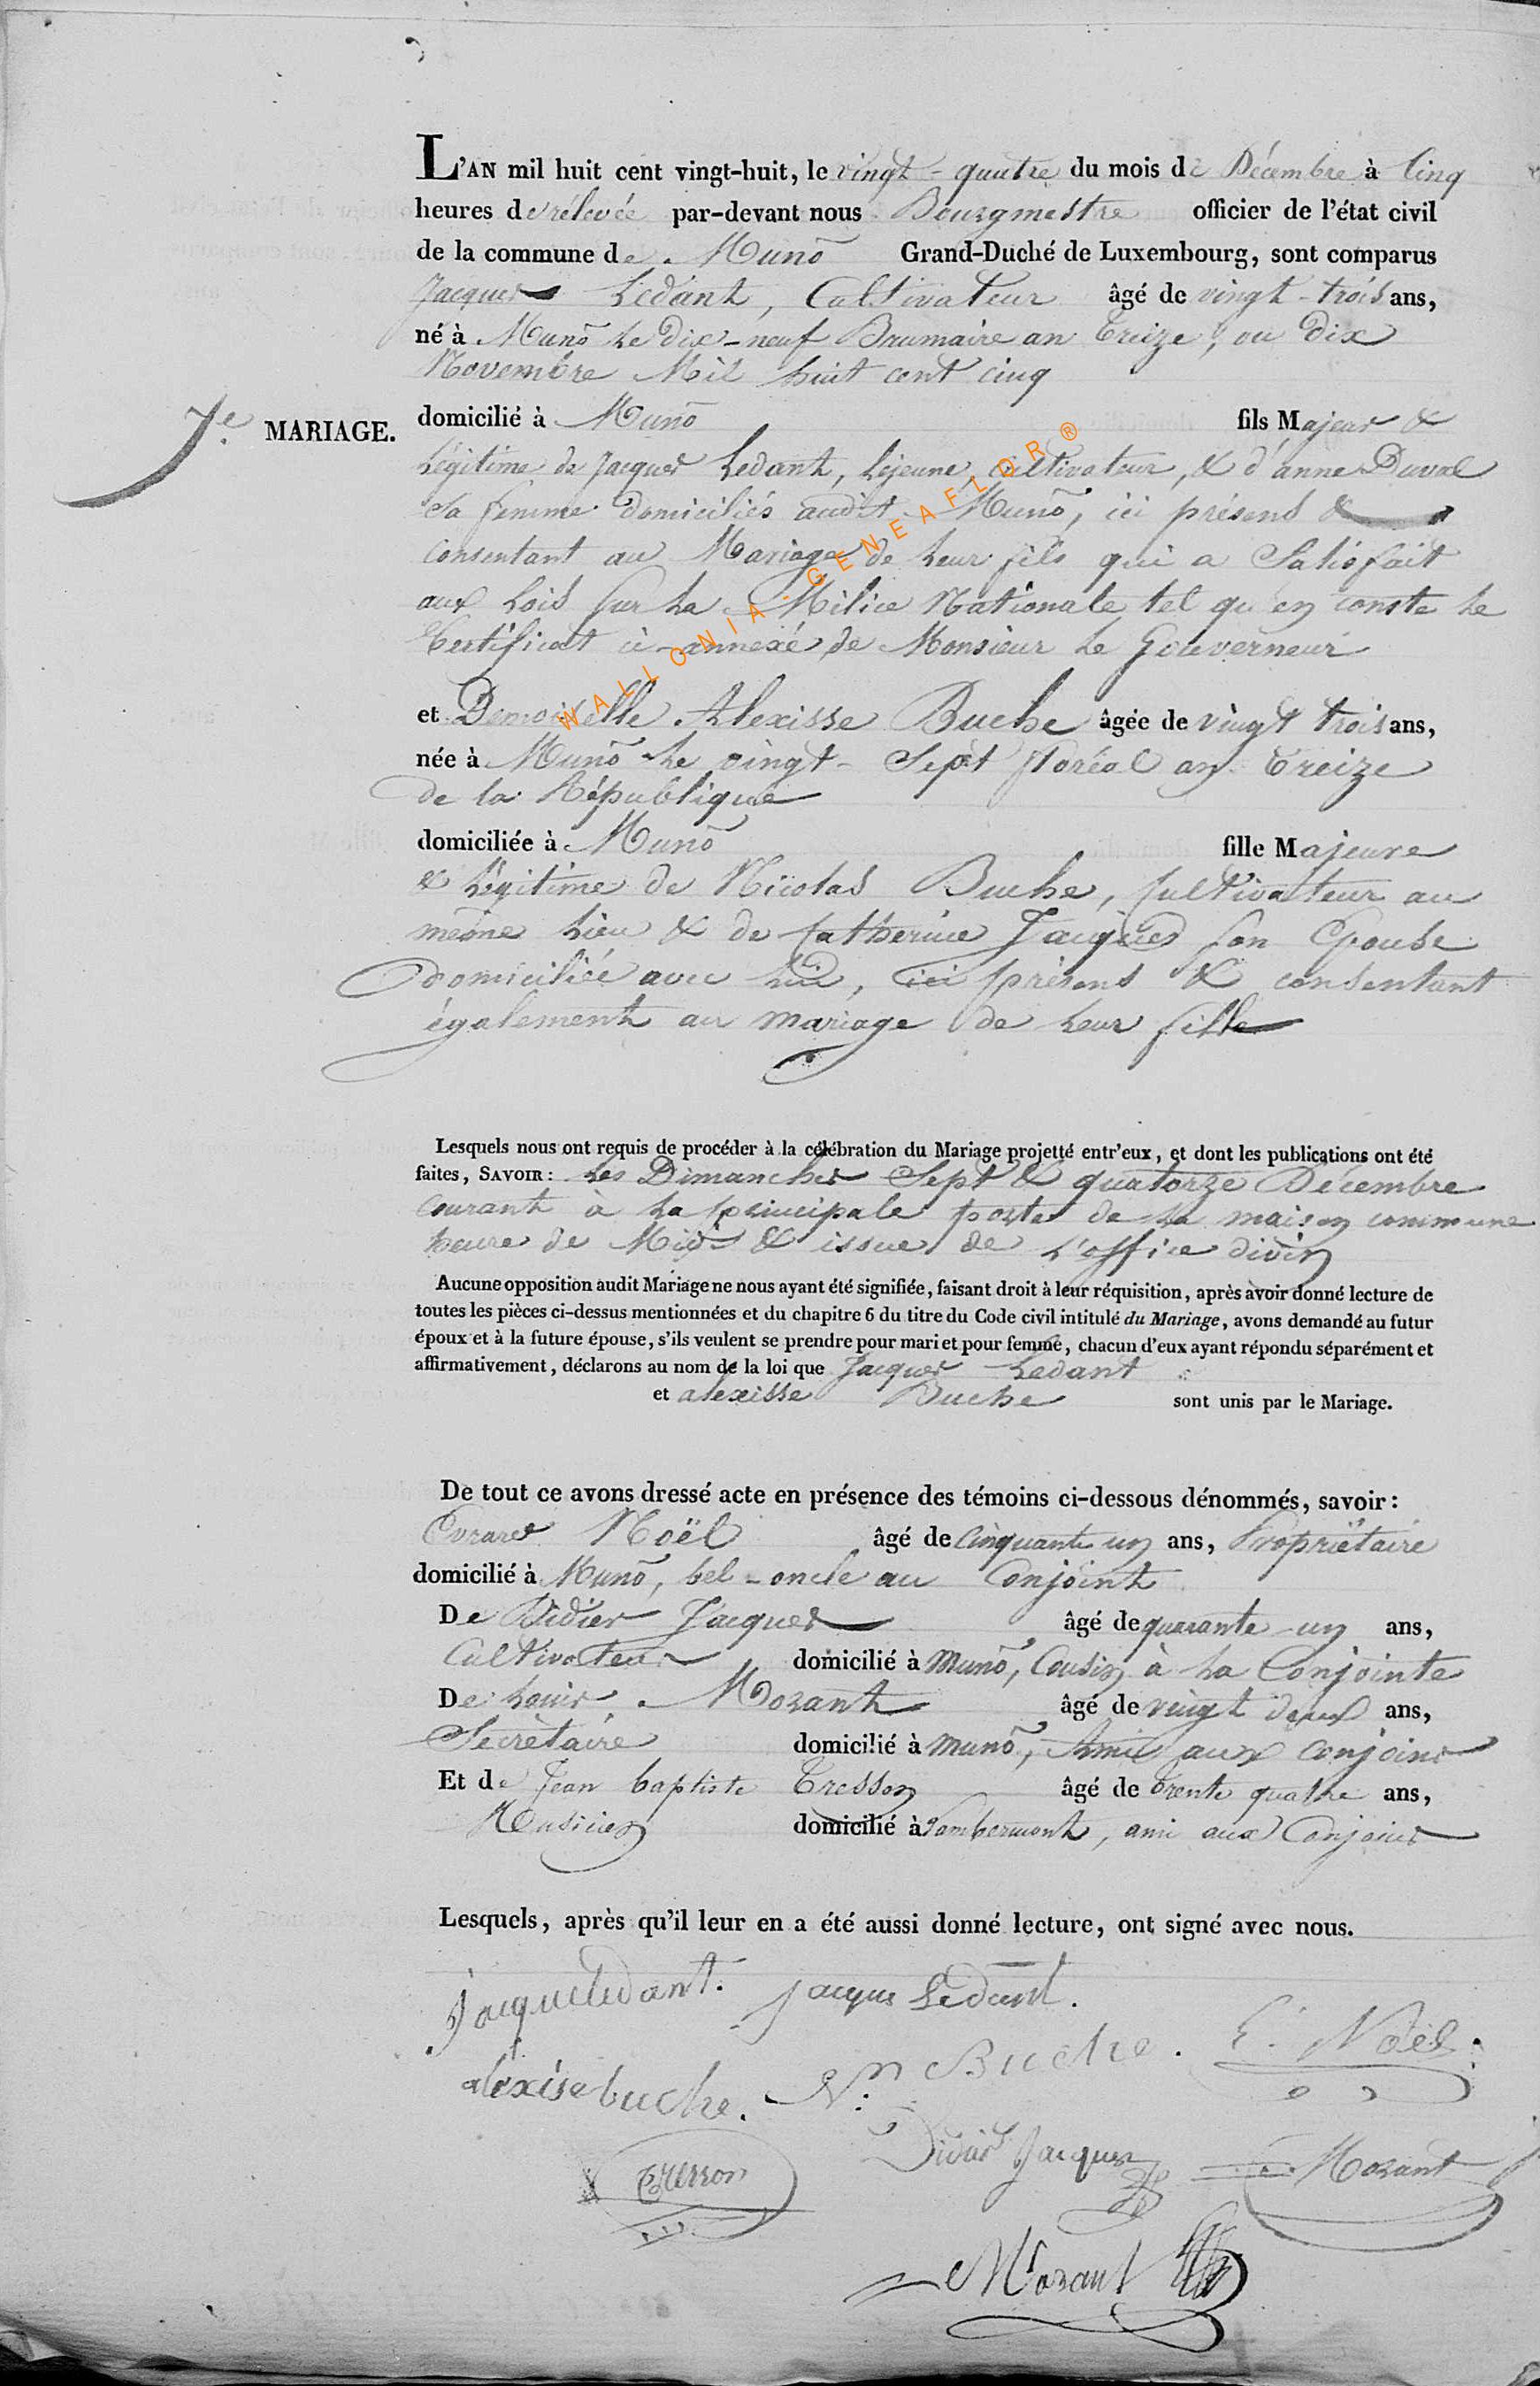 L'AN mil huit cent vingt-huit, le vingt-quatre du mois de Décembre à Cinq
heures de rélevée par-devant nous Bourgmestre officier de l'état civil
de la commune de Munô Grand-Duché de Luxembourg, sont comparus
Jacques Ledant, Cultivateur âgé de vingt-trois ans,
né à Munô Le Dix-neuf Brumaire an Treize, ou Dix
Novembre Mil huit cent cinq
7e MARIAGE.
domicilié à Munô fils Majeur &
Légitime de Jacques Ledant, Lejeune, Cultivateur, & d'anne Duval
Sa femme domiciliés audit Munô, ici présens &
consentant au Mariage de Leur fils qui a Satisfait
aux Lois sur La Milice Nationale tel qu'en conste Le
Certificat ci-annexé de Monsieur Le Gouverneur
et Demoiselle Alexisse Buche âgée de vingt trois ans,
née à Munô Le vingt-Sept floréal an Treize
de la République
domiciliée à Munô fille Majeure
& Légitime de Nicolas Buche, Cultivateur au
même Lieu & de Catherine Jacques son Epouse
domiciliée avec lui, ici présens & consentant
également au mariage de Leur fille
Lesquels nous ont requis de procéder à la célébration du Mariage projetté entr'eux, et dont les publications ont été
faites, SAVOIR: Les Dimanches Sept & quatorze Décembre
Courant à La principale porte de La maison commune
heure de Midi & issue de L'office divin
Aucune opposition audit Mariage ne nous ayant été signifiée, faisant droit à leur réquisition, après avoir donné lecture de
toutes les pièces ci-dessus mentionnées et du chapitre 6 du titre du Code civil intitulé du Mariage, avons demandé au futur
époux et à la future épouse, s'ils veulent se prendre pour mari et pour femme, chacun d'eux ayant répondu séparément et
affirmativement, déclarons au nom de la loi que Jacques Ledant
et alexisse Buche sont unis par le Mariage.
De tout ce avons dressé acte en présence des témoins ci-dessous dénommés, savoir:
Evrard Noël âgé de Cinquante un ans, Propriétaire
domicilié à Munô, bel-oncle au Conjoint
De Didier Jacques âgé de quarante-un ans,
Cultivateur domicilié à Munô, Cousin à La Conjointe
De Louis Mozant âgé de vingt deux ans,
Secrétaire domicilié à Munô, Ami aux conjoins
Et de Jean baptiste Tresson âgé de Trente quatre ans,
Musicien domicilié à Lambermont, ami aux Conjoins
Lesquels, après qu'il leur en a été aussi donné lecture, ont signé avec nous.
Jacque Ledant. Jacques Ledant.
alexise buche. Nas Buche. E. Noël.
Tresson Didier Jacques Mozant
Mozant
WALLONIA - GENEAFLOR ®